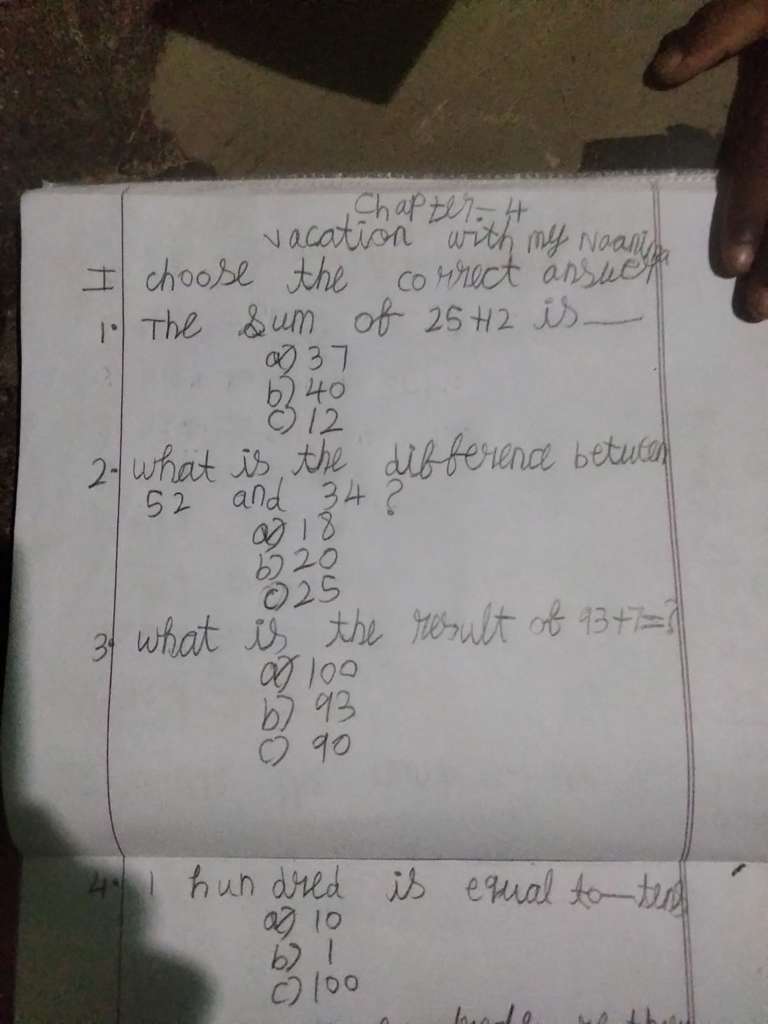 Chapter-4
vacation with my Naani
I choose the correct answer
1. The sum of 25+12 is —
a) 37
b) 40
c) 12
2. what is the difference between
52 and 34 ?
a) 18
b) 20
c) 25
3. what is the result of 93+7=?
a) 100
b) 93
c) 90
4. 1 hundred is equal to — tens
a) 10
b) 1
c) 100